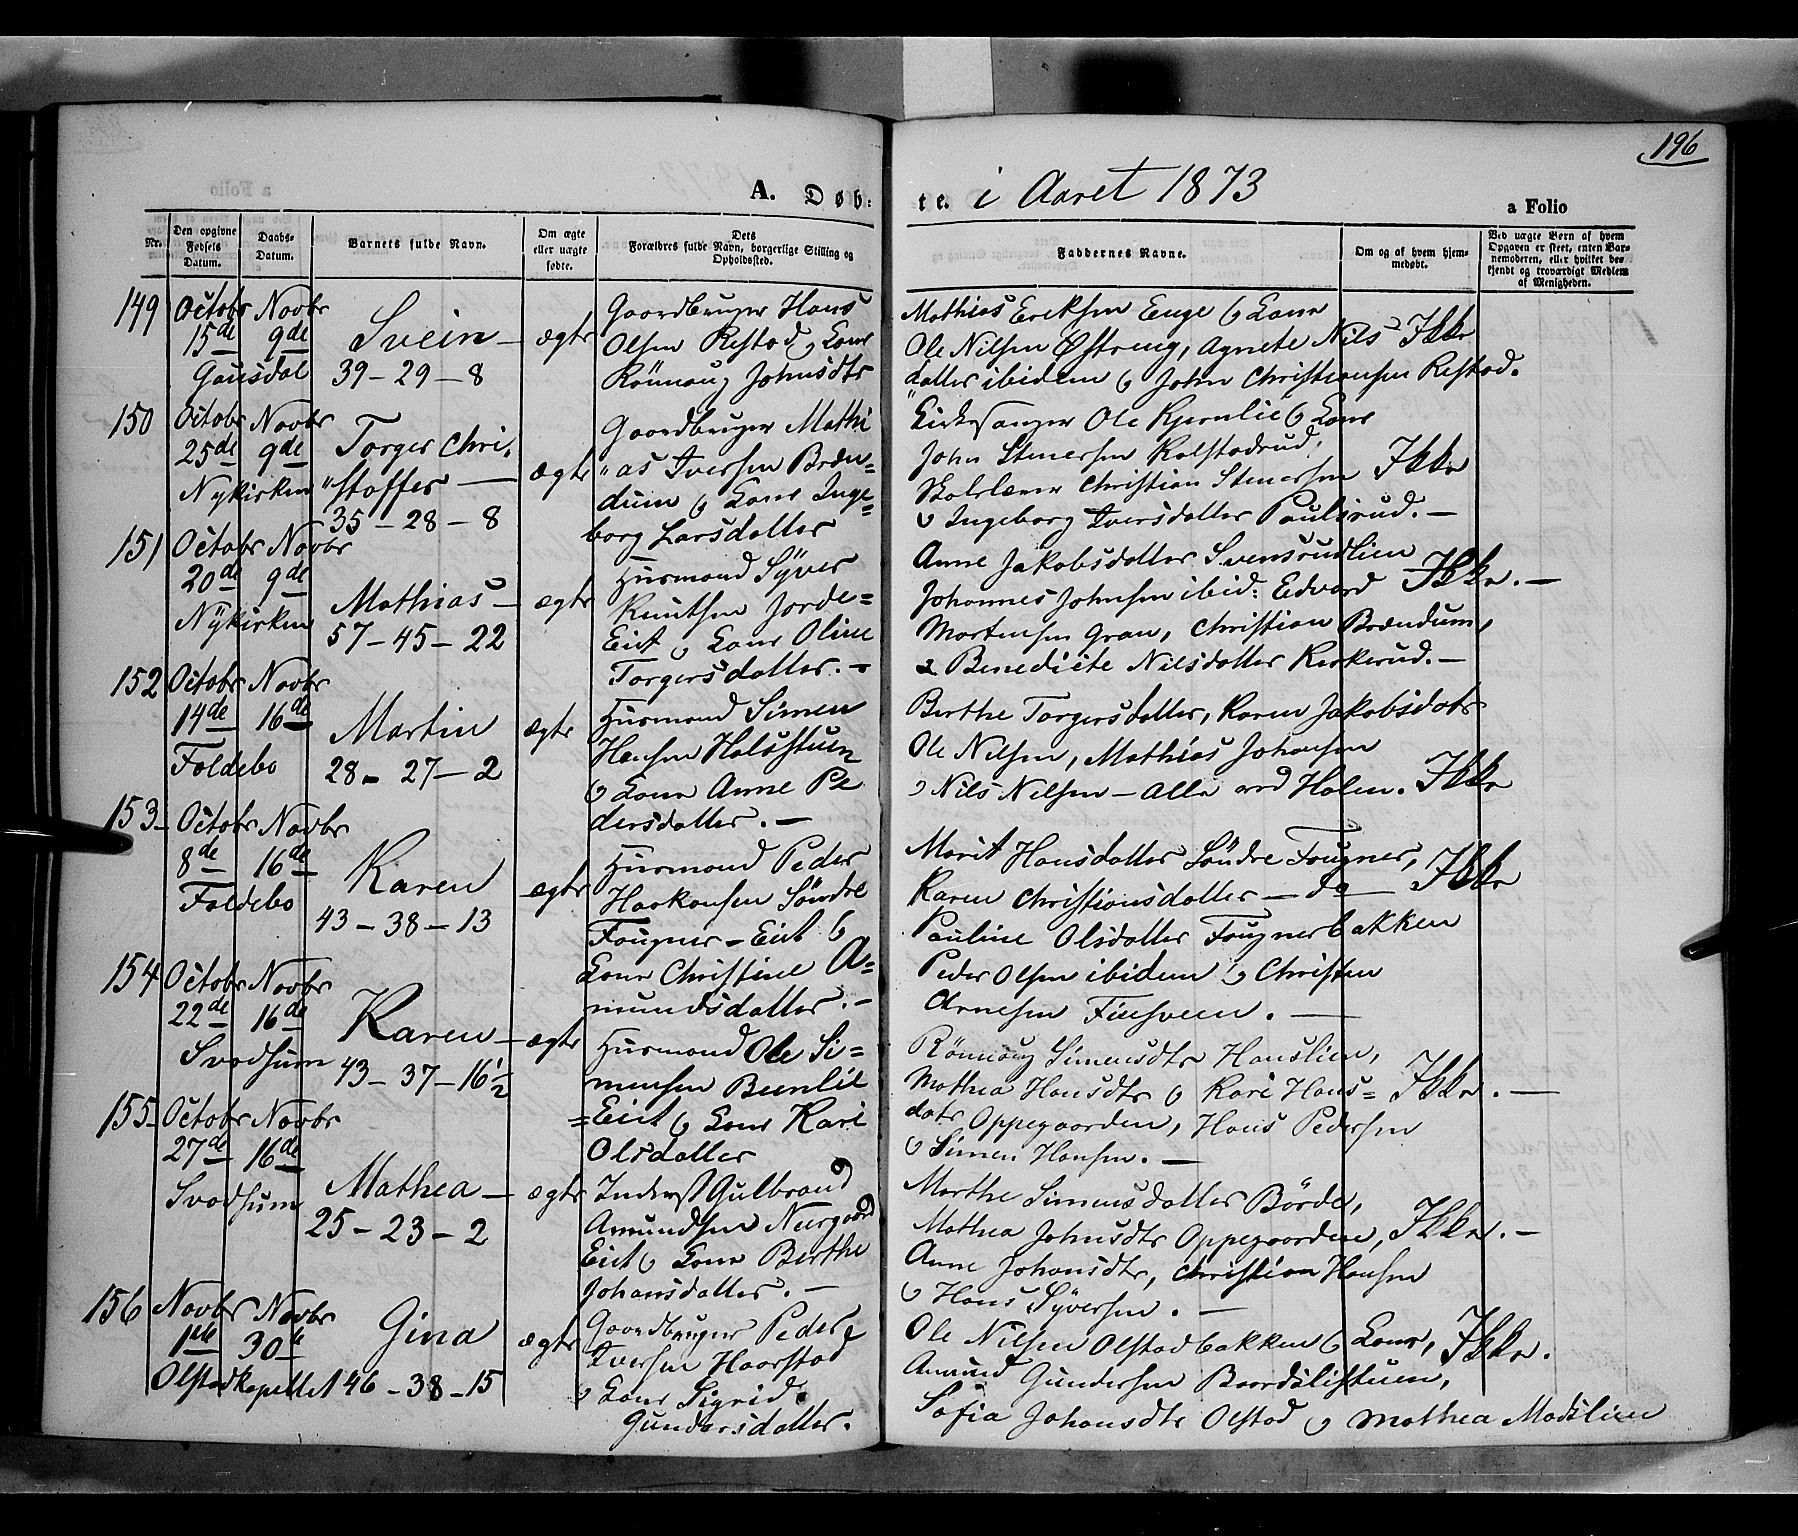 196
A. Døb:
te. i Aaret 1873
a Folio
Nr.
Den opgivne Fødsels Datum.
Daabs-Datum.
Barnets fulde Navn.
Om ægte eller uægte fødte.
Dets Forældres fulde Navn, borgerlige Stilling og Opholdssted.
Faddernes Navne.
Om og af hvem hjemmedøbt.
Ved uægte Børn af hvem Opgaven er skeet, enten Barnemoderen, eller hvilket bekjendt og troværdigt Medlem af Menigheden.
149 Octobr Novbr
15de 9de
Gausdal
Svein
39-29-8
ægte
Gaardbruger Hans
Olsen Restad og Kone
Rönnaug Johnsdtr
Mathias Eriksen Enge og Kone
Ole Nilsen Østreng, Agnete Nils
datter ibidem og John Christiansen Restad.
Ikke
150 Octobr Novbr
25de 9de
Nykirken
Torger Chri,
"stoffer
35-28-8
ægte
Gaardbruger Mathi
"as Iversen Bræn-
dum og Kone Inge=
borg Larsdatter
Kirkesanger Ole Kjernlie og Kone
John Stenersen Kalstadrud,
Skolelærer Christian Stenersen
og Ingeborg Iversdatter Paulsrud.-
Ikke
151 Octobr Novbr
20de 9de
Nÿkirken
Mathias
57-45-22
ægte
Husmand Sÿver
Knutsen Jorde=
Eiet og Kone Oline
Torgersdatter.-
Anne Jakobsdatter Svensrudlien
Johannes Johnsen ibid: Edvard
Mortensen Gran, Christian Brændum,
& Benedicte Nilsdatter Kirkerud.-
Ikke.-
152 Octobr Novbr
14de 16de
Foldebo
Martin
28-27-2
ægte
Husmand Simen
Hansen Holsstuen
og Kone Anne Pe
dersdatter.-
Berthe Torgersdatter, Karen Jakobsdatr
Ole Nilsen, Mathias Johansen
og Nils Nilsen - Alle ved Holen.
Ikke
153- Octobr Novbr
8de 16de
Foldebo
Karen
43-38-13
ægte
Husmand Peder
Haakonsen Söndre
Fougner-Eiet og
Kone Christine A=
mundsdatter.-
Marit Hansdatter Söndre Fougner,
Karen Christiansdatter - do -
Pauline Olsdatter Fougnerbakken
Peder Olsen ibidem og Christen
Arnesen Finsveen.
Ikke
154 Octobr Novbr
22de 16de
Svodsum
Karen
43-37-16½
ægte
Husmand Ole Si=
mensen Beenlie
=Eiet og Kone Kari
Olsdatter
Rönnaug Simensdtr Hanslien,
Mathea Hansdtr og Kari Hans=
datr Oppegaarden, Hans Pedersen
og Simen Hansen.-
Ikke.-
155- Octobr Novbr
27de 16de
Svodsum
Mathea
25-23-2
ægte
Inderst Gulbrand
Amundsen Neegaard
Eiet og Kone Berthe
Johansdatter.-
Marthe Simensdatter Börde,
Mathea Johnsdtr Oppegaarden,
Anne Johansdtr, Christian Hansen
og Hans Sÿversen.-
Ikke.-
156 Novbr Novbr
1ste 30te
Olstadkapellet
Gina
46-38-15
ægte
Gaardbruger Peder
Iversen Haarstad
og Kone Sigrid
Gundersdatter.
Ole Nilsen Olstadbakken og Kone,
Amund Gundersen Baardslistuen,
Sofia Johansdtr Olstad og Mathea Madslien
Ikke.